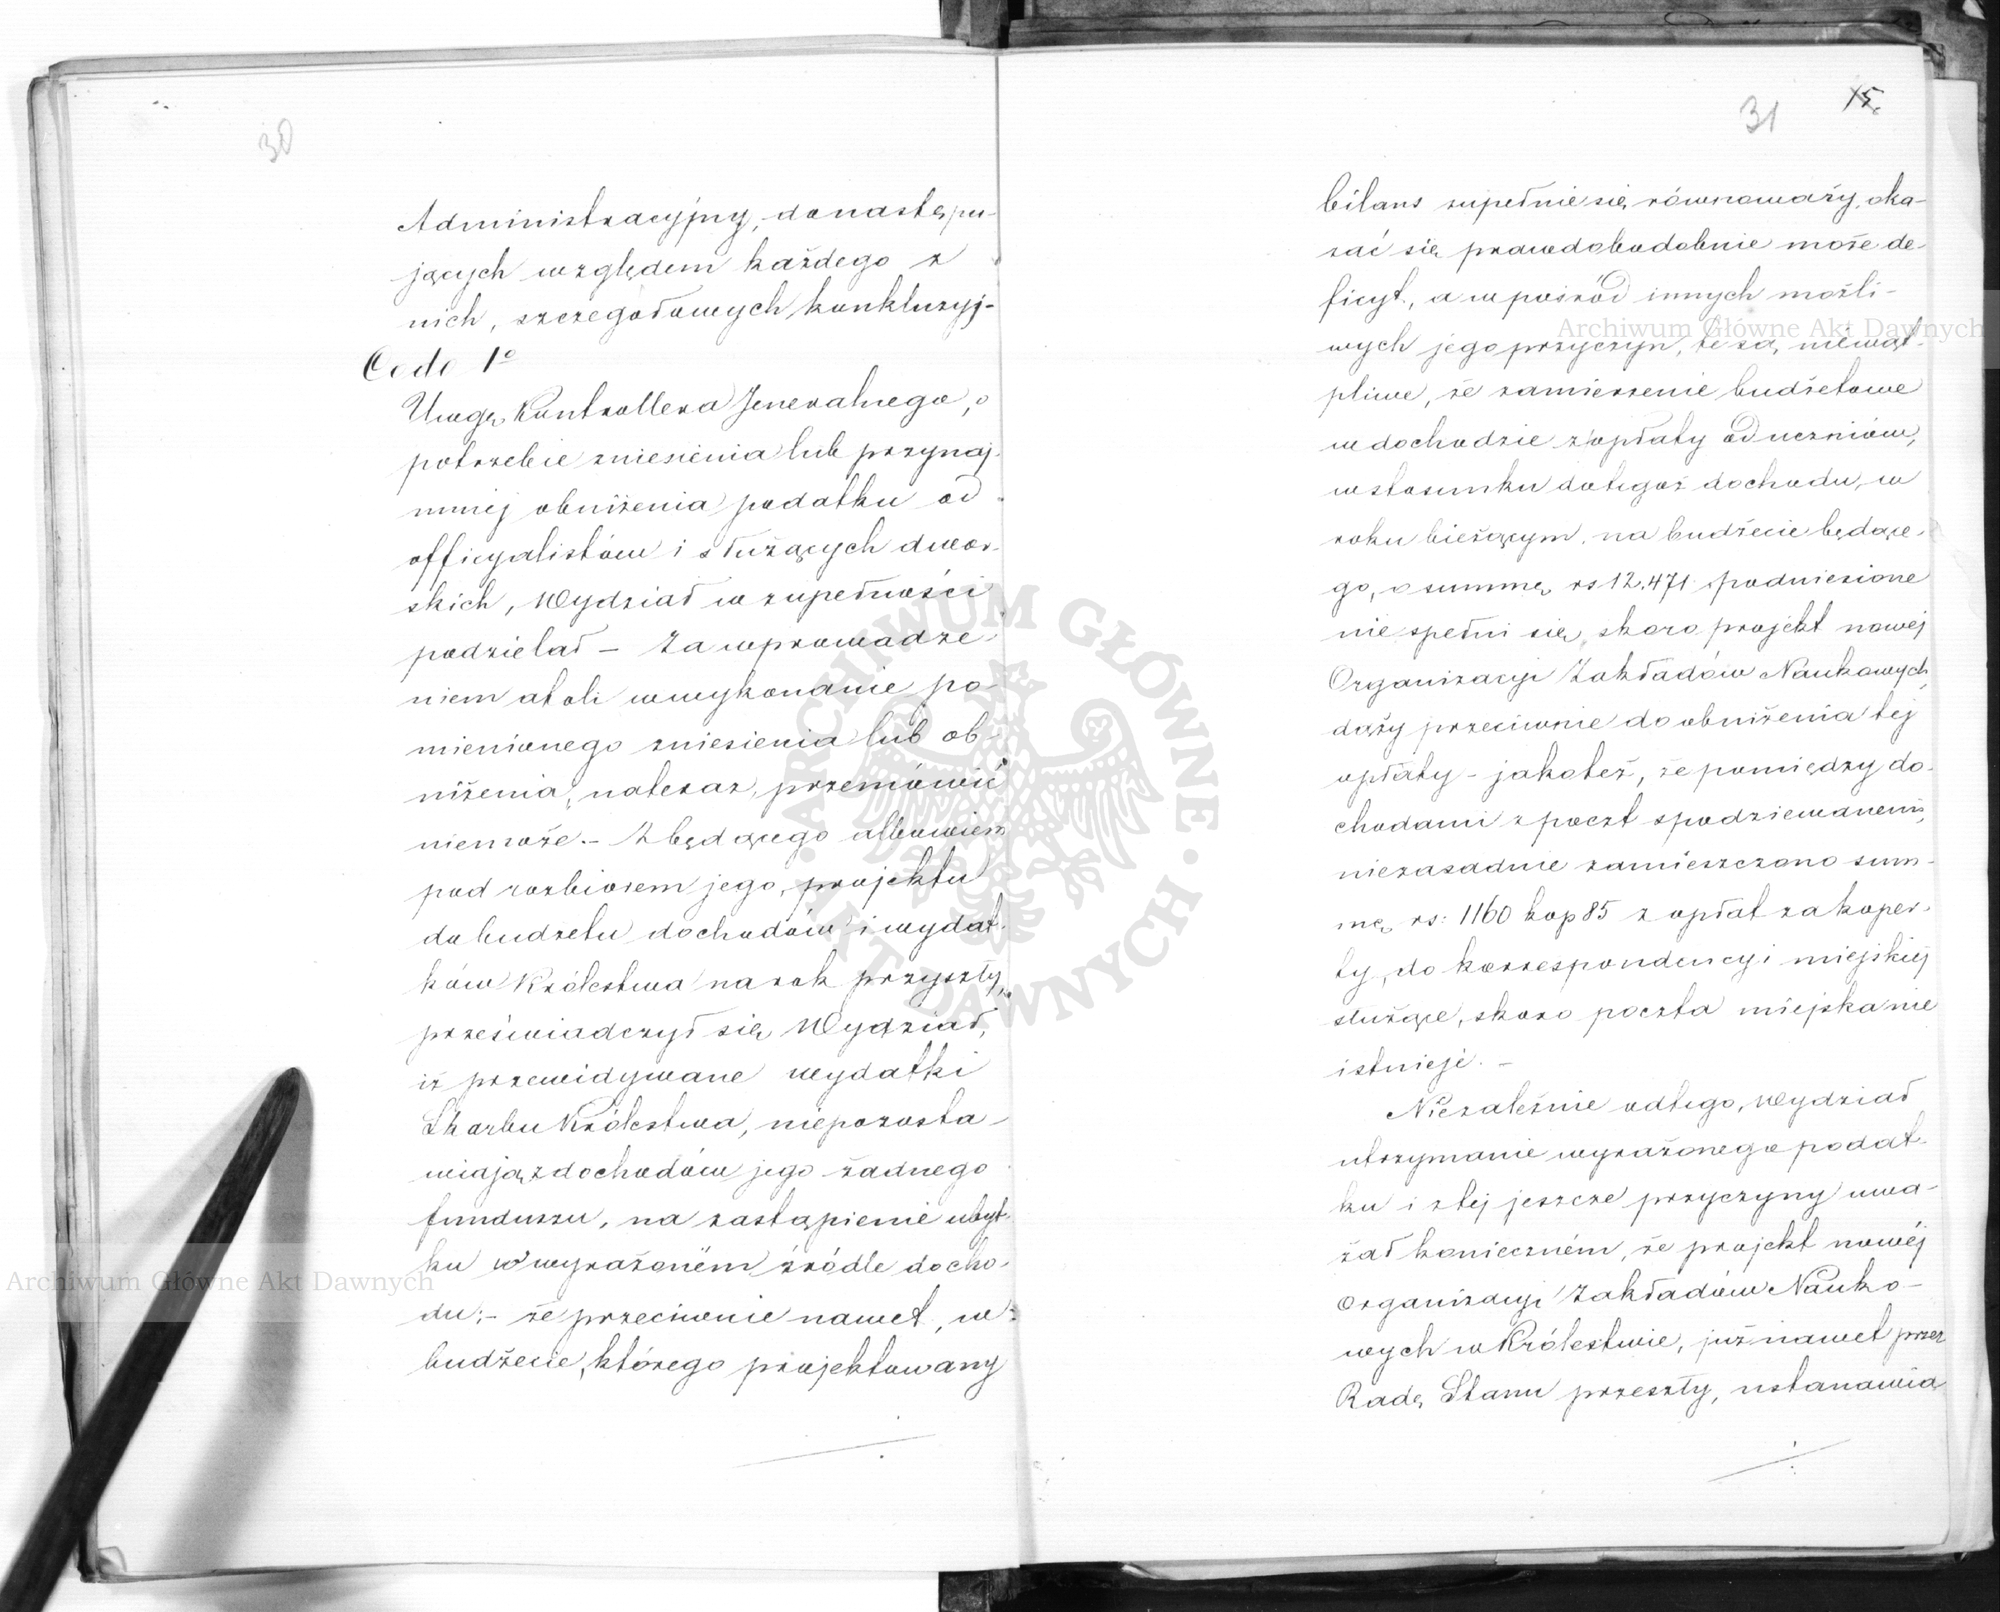 30
Administracyjny, do następu-
jących względem każdego z
nich, szczegółowych konkluzyj-
Co do 1º
Uwagę Kontrollera Jeneralnego, o
potrzebie zniesienia lub przynaj-
mniej obniżenia podatku od
officyalistów i służących dwor-
skich, Wydział w zupełności
podzielał – Za wprowadze-
niem atoli w wykonanie po-
mienionego zniesienia lub ob-
niżenia, na teraz, przemówić
niemoże.– Z będącego albowiem
pod rozbiorem jego, projektu
do budżetu dochodów i wydat-
ków Królestwa na rok przyszły,
przeświadczył się Wydział,
iż przewidywane wydatki
Skarbu Królestwa, niepozosta-
wiają z dochodów jego żadnego
funduszu, na zastąpienie ubyt-
ku w wyrażoném źródle docho-
du;– że przeciwnie nawet, w
budżecie, którego projektowany
31 15.
bilans zupełnie się równoważy, oka-
zać się prawdobodobnie może de-
ficyt, a wpośród innych możli-
wych jego przyczyn, te są, niewąt-
pliwe, że zamierzenie budżetowe
w dochodzie z opłaty od uczniów,
w stosunku do tegoż dochodu, w
roku bieżącym, na budżecie będące-
go, o summę rs 12.471 podniesione
nie spełni się, skoro projekt nowéj
Organizacyi Zakładów Naukowych,
dąży przeciwnie do obniżenia téj
opłaty – jakoteż, że pomiędzy do-
chodami z poczt spodziewanemi,
niezasadnie zamieszczono sum-
mę rs: 1160 kop 85 z opłat za koper-
ty, do korrespondencyi miejskiéj
służące, skoro poczta miejska nie
istnieje. –
Niezależnie od tego, Wydział
utrzymanie wyrażonego podat-
ku i z téj jeszcze przyczyny uwa-
żał konieczném, że projekt nowéj
Organizacyi Zakładów Nauko-
wych w Królestwie, już nawet przez
Radę Stanu przeszły, ustanawia
ARCHIWUM GŁÓWNE AKT DAWNYCH
Archiwum Główne Akt Dawnych
Archiwum Główne Akt Dawnych